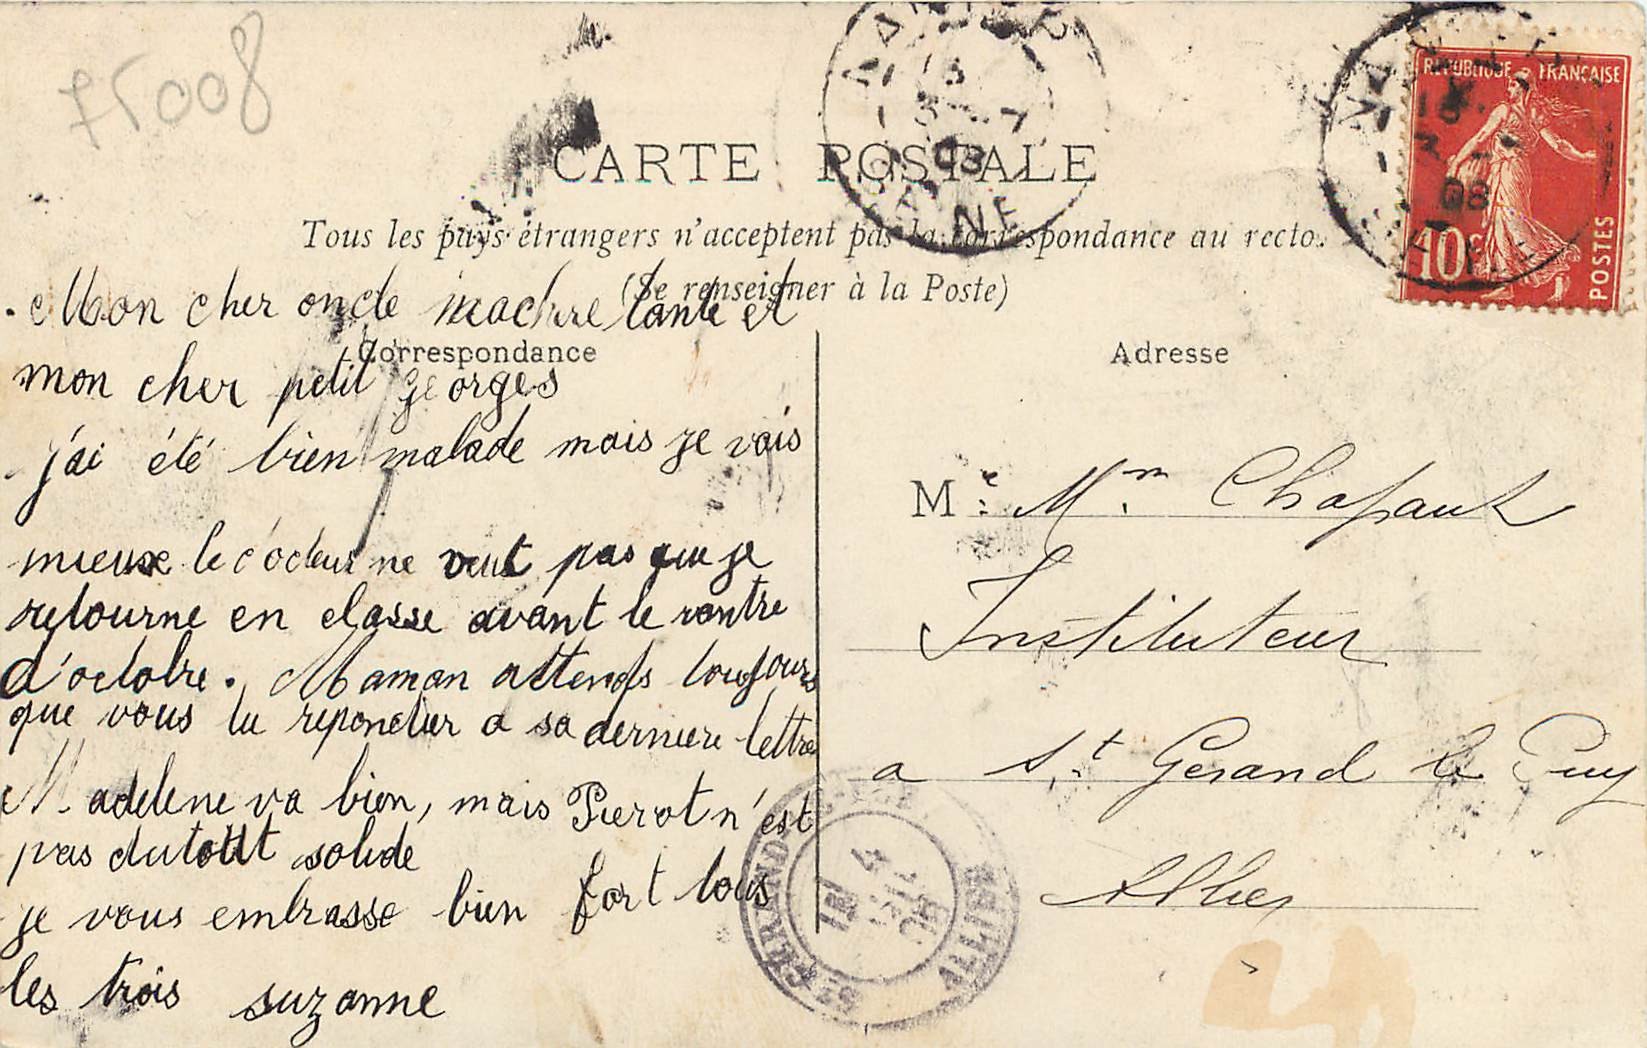 75008
CARTE POSTALE
Tous les pays étrangers n'acceptent pas la correspondance au recto.
(Se renseigner à la Poste)
Correspondance
Mon cher oncle ma chere tante et
mon cher petit Georges
j'ai été bien malade mais je vais
mieux le docteur ne veut pas que je
retourne en classe avant le rentre
d'octobre. Maman attends toujours
que vous lu repondier a sa derniere lettre
Madelene va bien, mais Pierot n'est
pas dutout solide
je vous embrasse bien fort tous
les trois suzanne
Adresse
M
Mr. Mm
Instituteur
a St Gerand le Puy
Allier
REPUBLIQUE FRANÇAISE
10c
POSTES
3 - 7
08
NE
08
ST GERAND-LE-PUY
4
JUIL
08
ALLIER